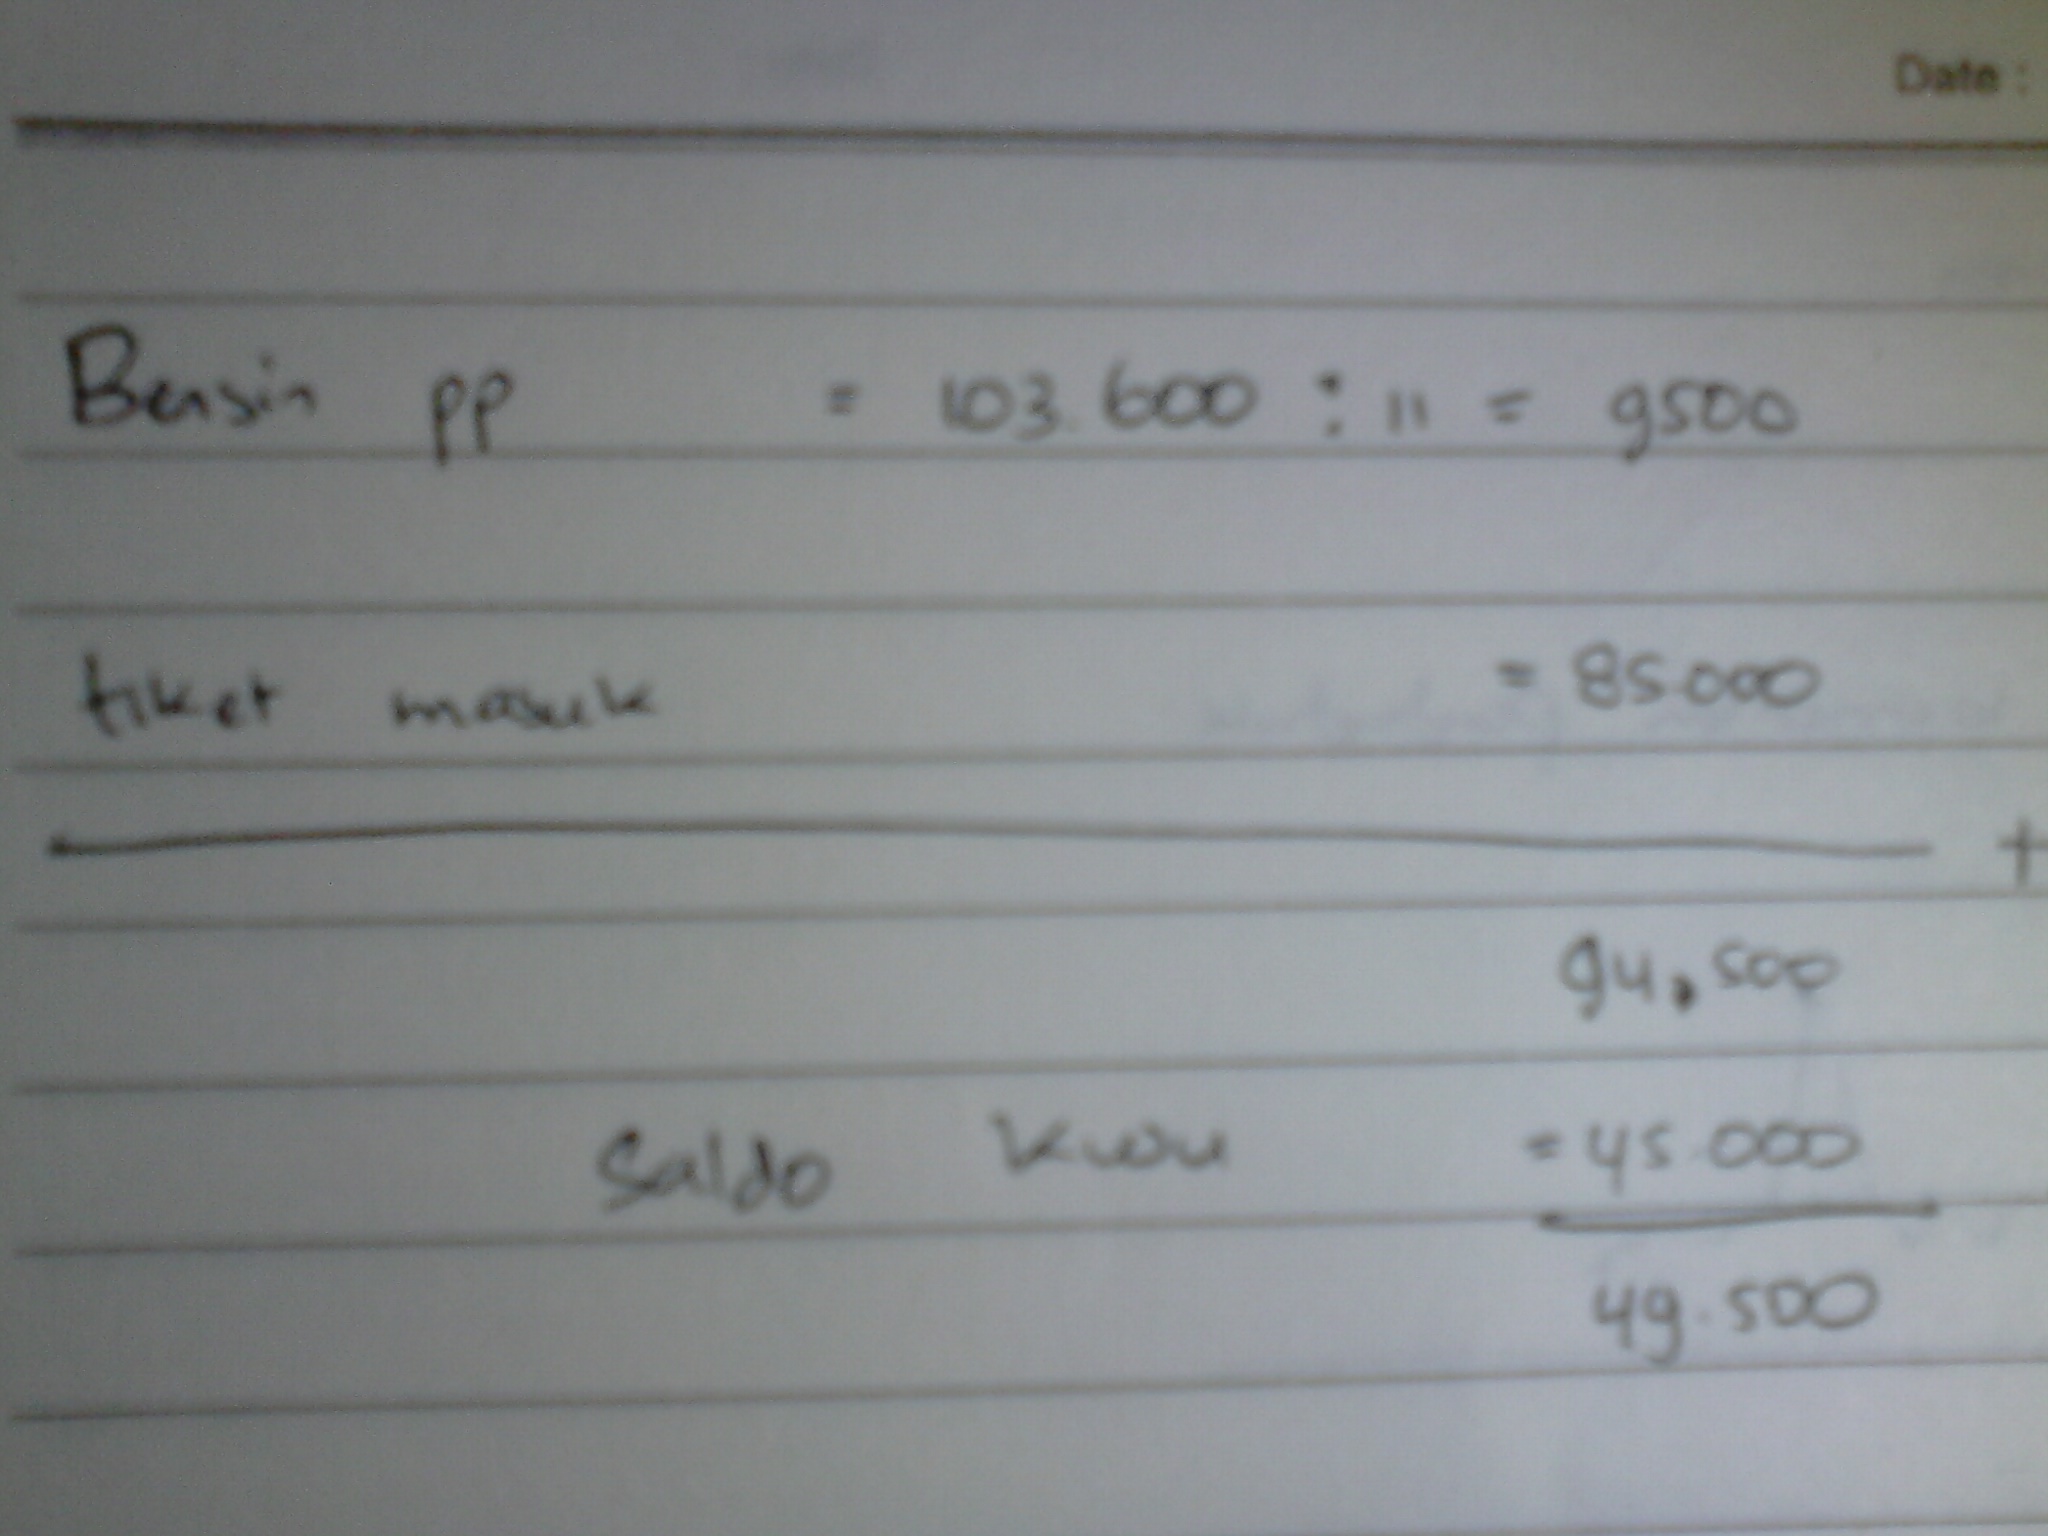 Date :
Bensin PP = 103.600 : 11 = 9500
tiket masuk = 85.000
+
94.500
Saldo = 45.000
49.500